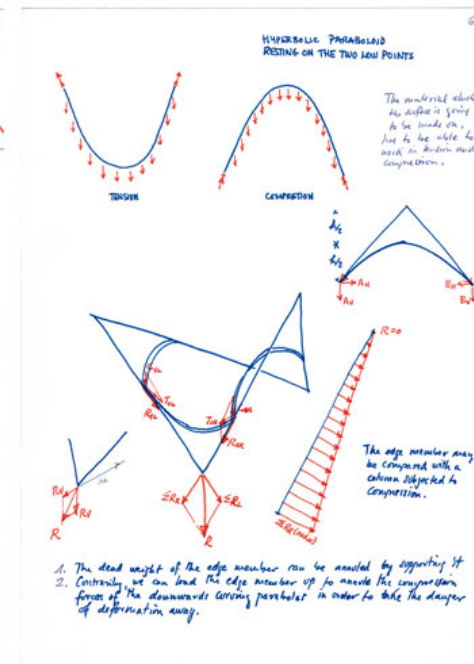 6
HYPERBOLIC PARABOLOID
RESTING ON THE TWO LOW POINTS
The material which
the surface is going
to be made on,
has to be able to
work in tension and
compression.
TENSION
COMPRETION
h/2
h/2
AH
AV
BH
R=0
The edge member may
be compared with a
column subjected to
compression.
R
ΣRE
ΣRE
R
1. The dead weight of the edge member can be annuled by supporting it
2. Contrarily, we can load the edge member up to annule the compression
forces of the downwards curving parabolas in order to take the danger
of deformation away.